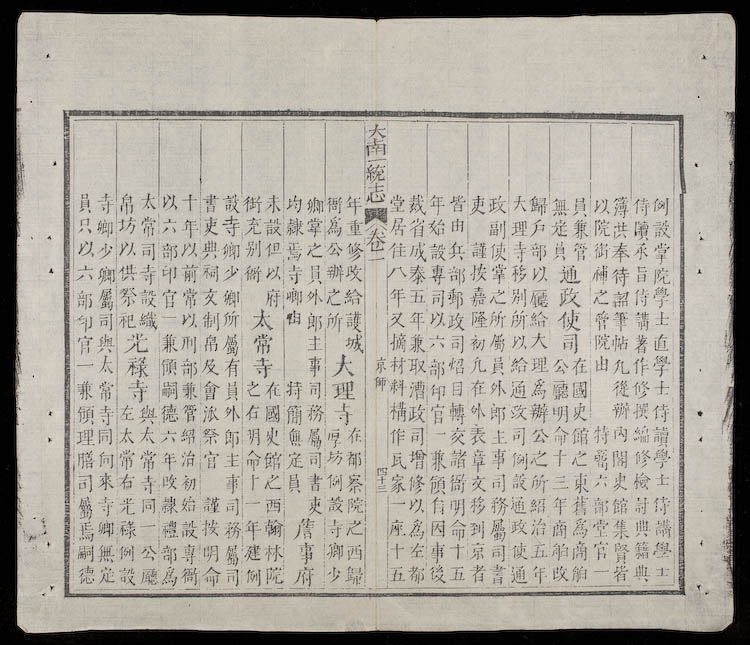 例設掌院學士直學士侍讀學士侍講學士
侍讀承旨侍講著作修撰編修檢討典籍典
簿洪奉待詔筆帖凡從辦內閣史館集賢皆
以院銜補之管院由 特簡六部堂官一
員兼管 通政使司 在國史館之東舊為商舶
公廳明命十三年商舶改
無定員
歸戶部以廳給大理為辦公之所紹治五年
大理寺移別所以給通政司例設通政使通
政副使掌之所屬員外郎主事司務屬司書
吏 謹按嘉隆初凡在外表章文移到京者
皆由兵部郵政司炤目轉交諸衙明命十五
年始設專司以六部印官一兼領行因事後
裁省成泰五年兼取漕政司增修以為左都
堂居住八年又摘材料構作瓦家一座十五
大南一統志 卷一 京師 四十三
年重修改給護城 大理寺 在都察院之西歸
厚坊例設寺卿少
衙為公辦之所
卿掌之員外郎主事司務屬司書吏
均隷焉寺卿由 特簡無定員 詹事府
未設但以府
銜充別衙 太常寺 在國史館之西翰林院
之右明命十一年建例
設寺卿少卿所屬有員外郎主事司務屬司
書吏典祠文制帛及會派祭官 謹按明命
十年以前常以刑部兼管紹治初始設專衙
以六部印官一兼領嗣德六年改隷禮部為
太常司寺設織 光祿寺 與太常寺同一公廳
左太常右光祿例設
帛坊以供祭祀
寺卿少卿屬司與太常寺同向來寺卿無定
員只以六部印官一兼領理膳司屬焉嗣德